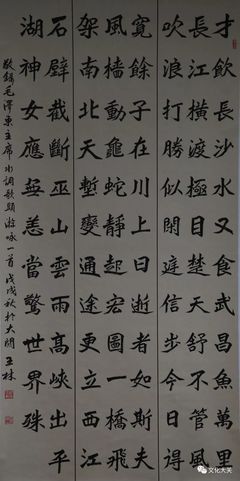 才飲長沙水又食武昌魚萬里
長江橫渡極目楚天舒不管風
吹浪打勝似閒庭信步今日得
寬餘子在川上曰逝者如斯夫
風檣動龜蛇靜起宏圖一橋飛
架南北天塹變通途更立西江
石壁截斷巫山雲雨高峽出平
湖神女應無恙當驚世界殊
敬錄毛澤東主席水調歌頭游泳一首 戊戌秋於大關王林
文化大关